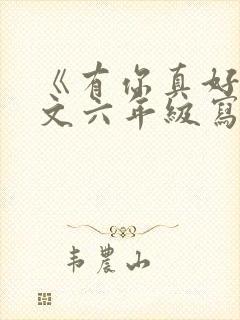 《有你真好
文六年級寫
韦農山